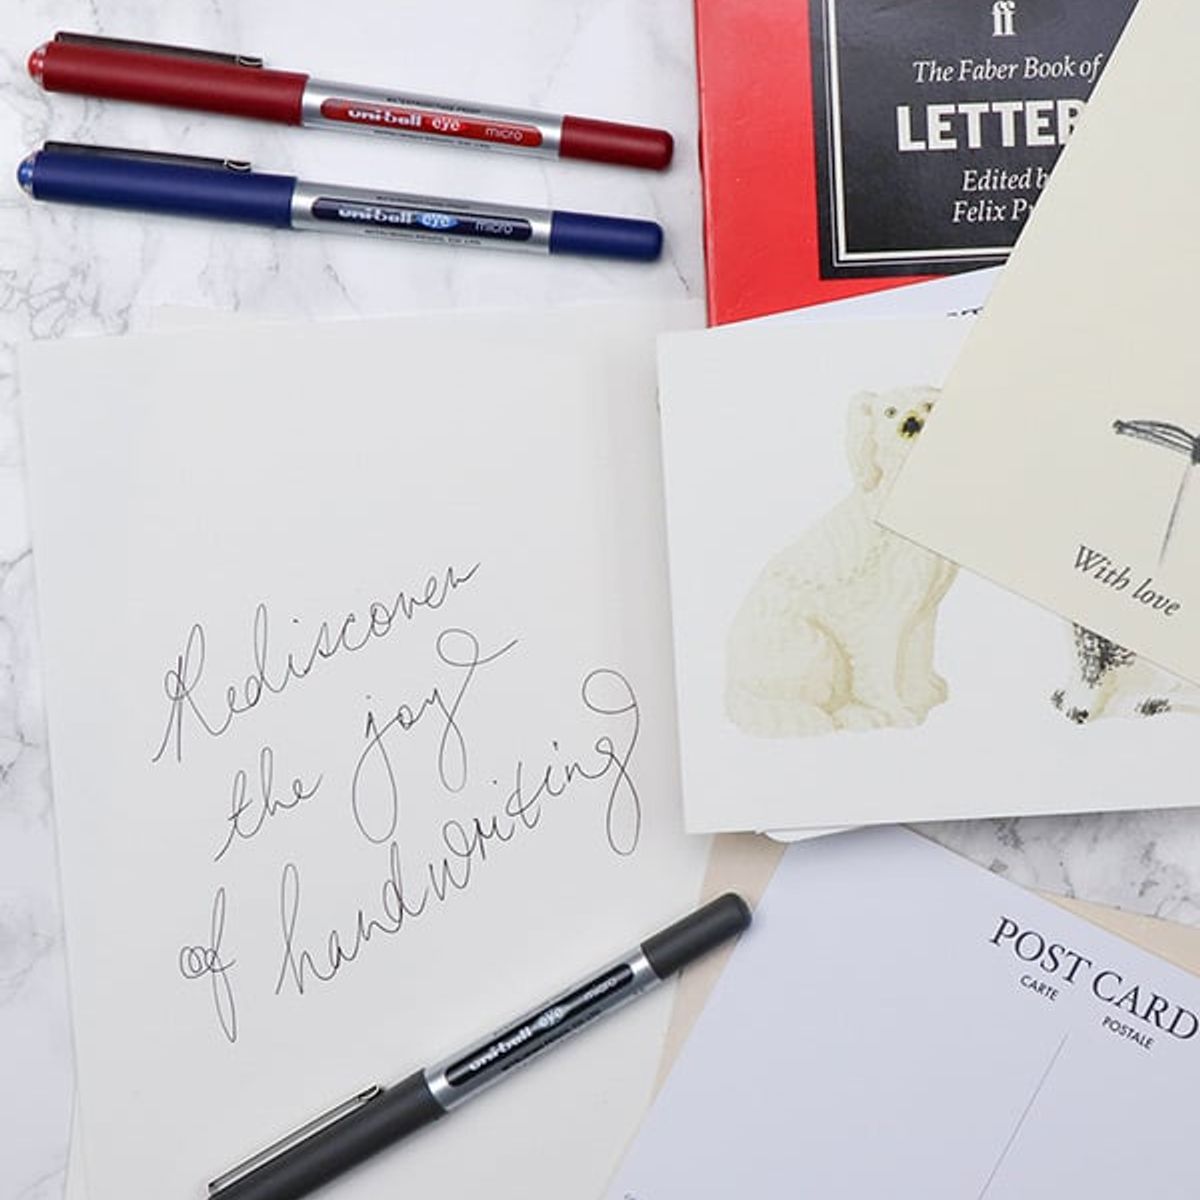 uni-ball eye micro
uni-ball eye micro
ff
The Faber Book of
LETTER
Edited b
Felix P
Rediscover
the joy
of handwriting
With love
uni-ball eye micro
POST CARD
CARTE
POSTALE